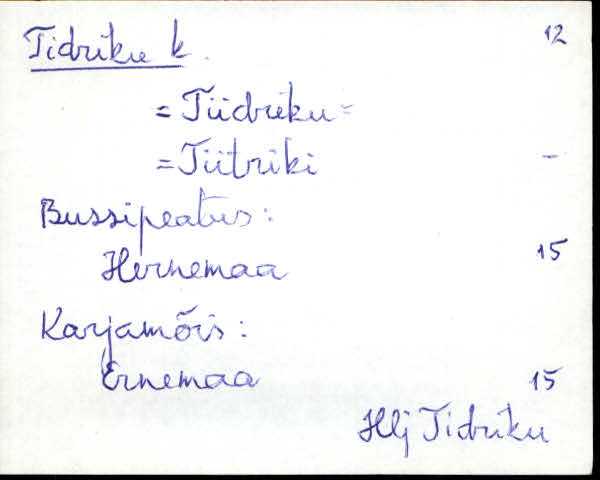 Tidriku k. 12
= Tiidriku =
= Tiitriki -
Bussipeatus:
Hernemaa 15
Karjamõis:
Ernemaa 15
Hlj Tidriku